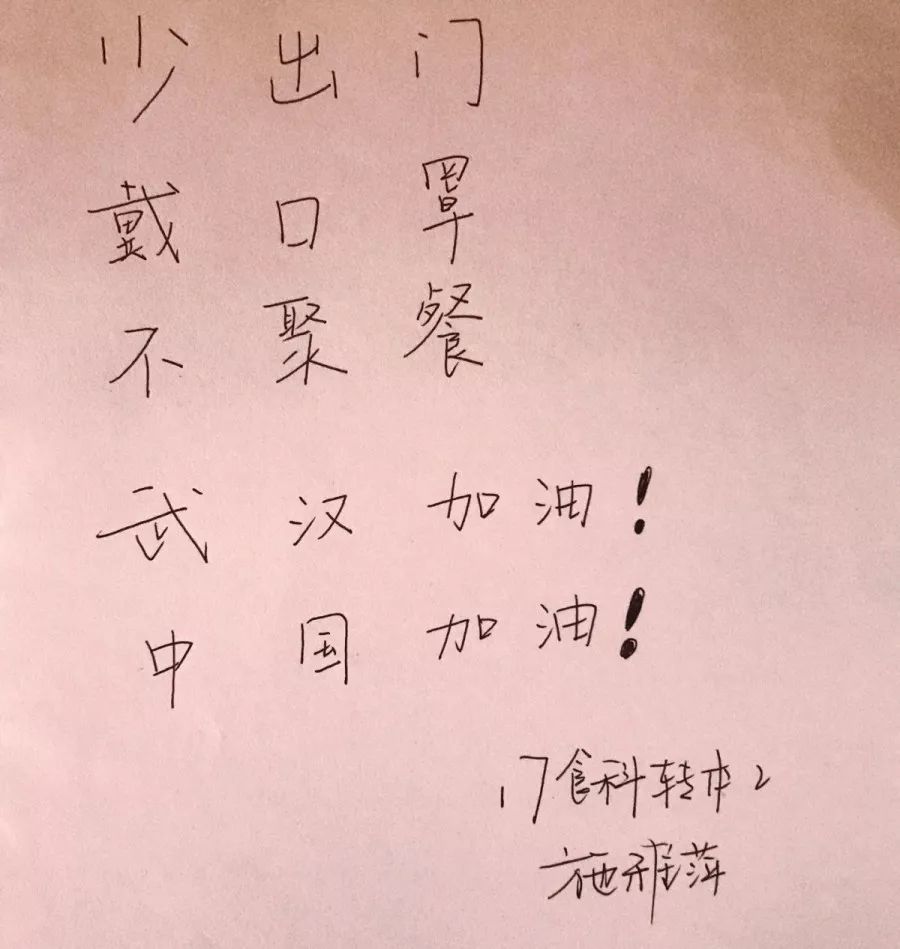 少出门
戴口罩
不聚餐
武汉加油！
中国加油！
17食科转本2
施雅萍